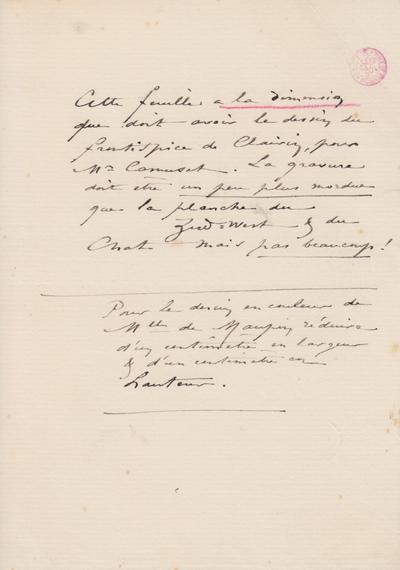 Cette feuille a la dimension
que doit avoir le dessin du
frontispice de Clairin, pour
Mr Camuset. La gravure
doit être un peu plus mordue
que la planche du
Zud-West & du
Chat mais pas beaucoup!
Pour le dessin en couleur de
Mlle de Maupin réduire
d'un centimètre en largeur
& d'un centimètre en
hauteur.